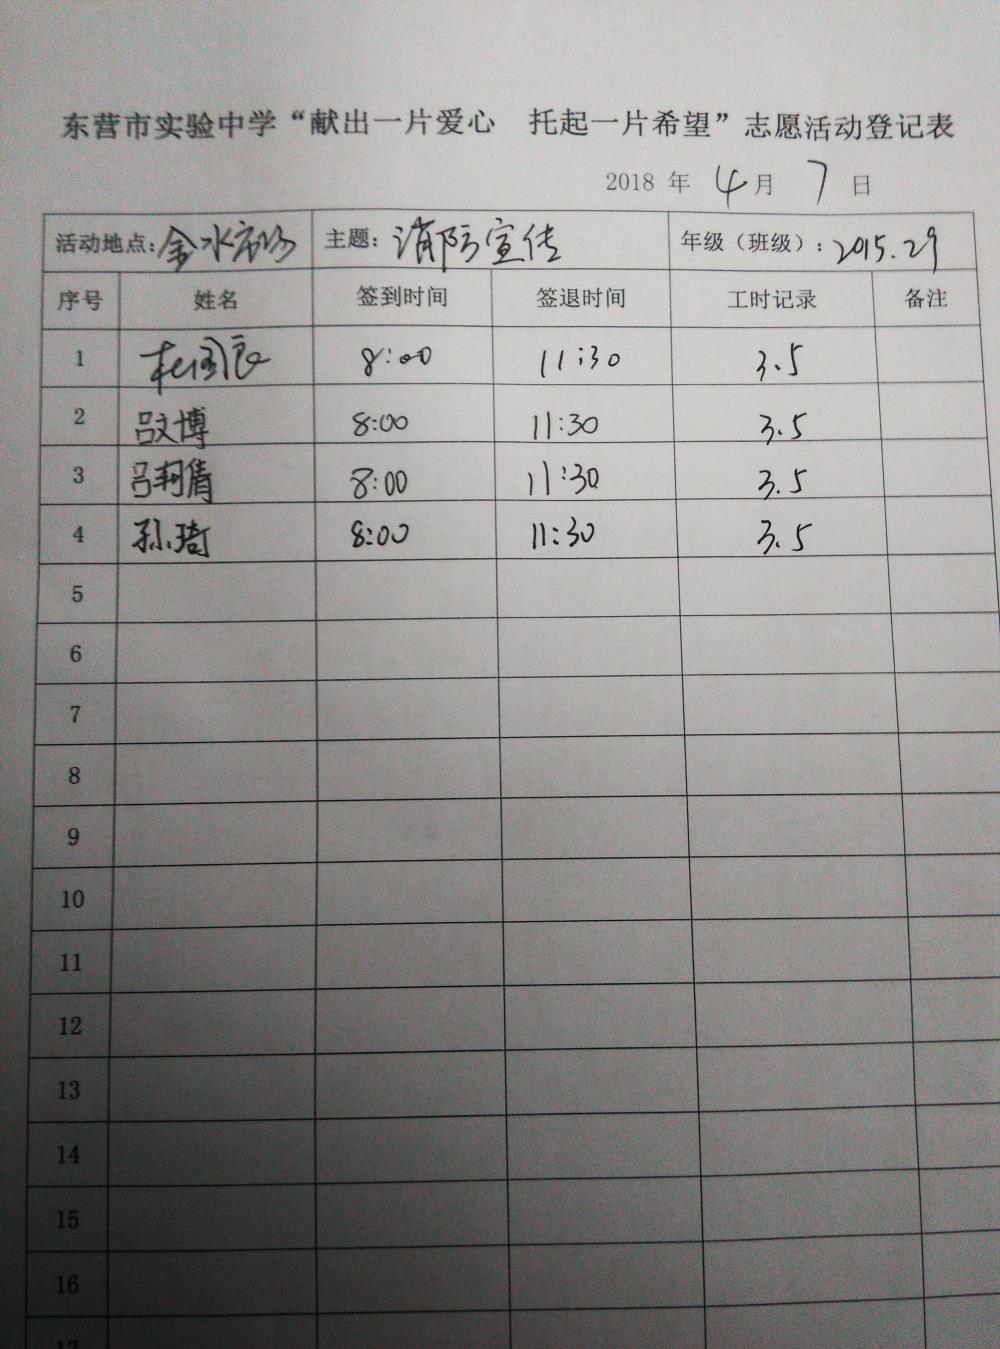 东营市实验中学“献出一片爱心 托起一片希望”志愿活动登记表
2018 年 4 月 7 日
活动地点：金水市场 主题：消防宣传 年级（班级）：2015.29
序号 姓名 签到时间 签退时间 工时记录 备注
1 杜国良 8:00 11:30 3.5
2 吕文博 8:00 11:30 3.5
3 吕翔倩 8:00 11:30 3.5
4 孙琦 8:00 11:30 3.5
5
6
7
8
9
10
11
12
13
14
15
16
17